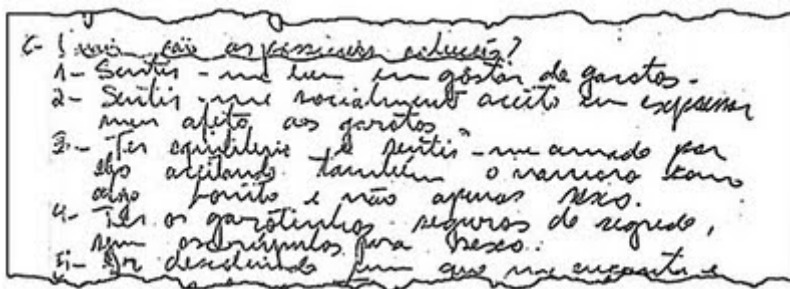 6- Quais são as possíveis soluções?
1- Sentir-me bem em gostar de garotos.
2- Sentir-me socialmente aceito em expressar
meu afeto aos garotos
3- Ter equilíbrio e sentir-me amado por
eles aceitando também o namoro como
algo bonito e não apenas sexo.
4- Ter os garotinhos seguros do segredo,
sem escrúpulos para sexo.
5- Ir descobrindo um que me